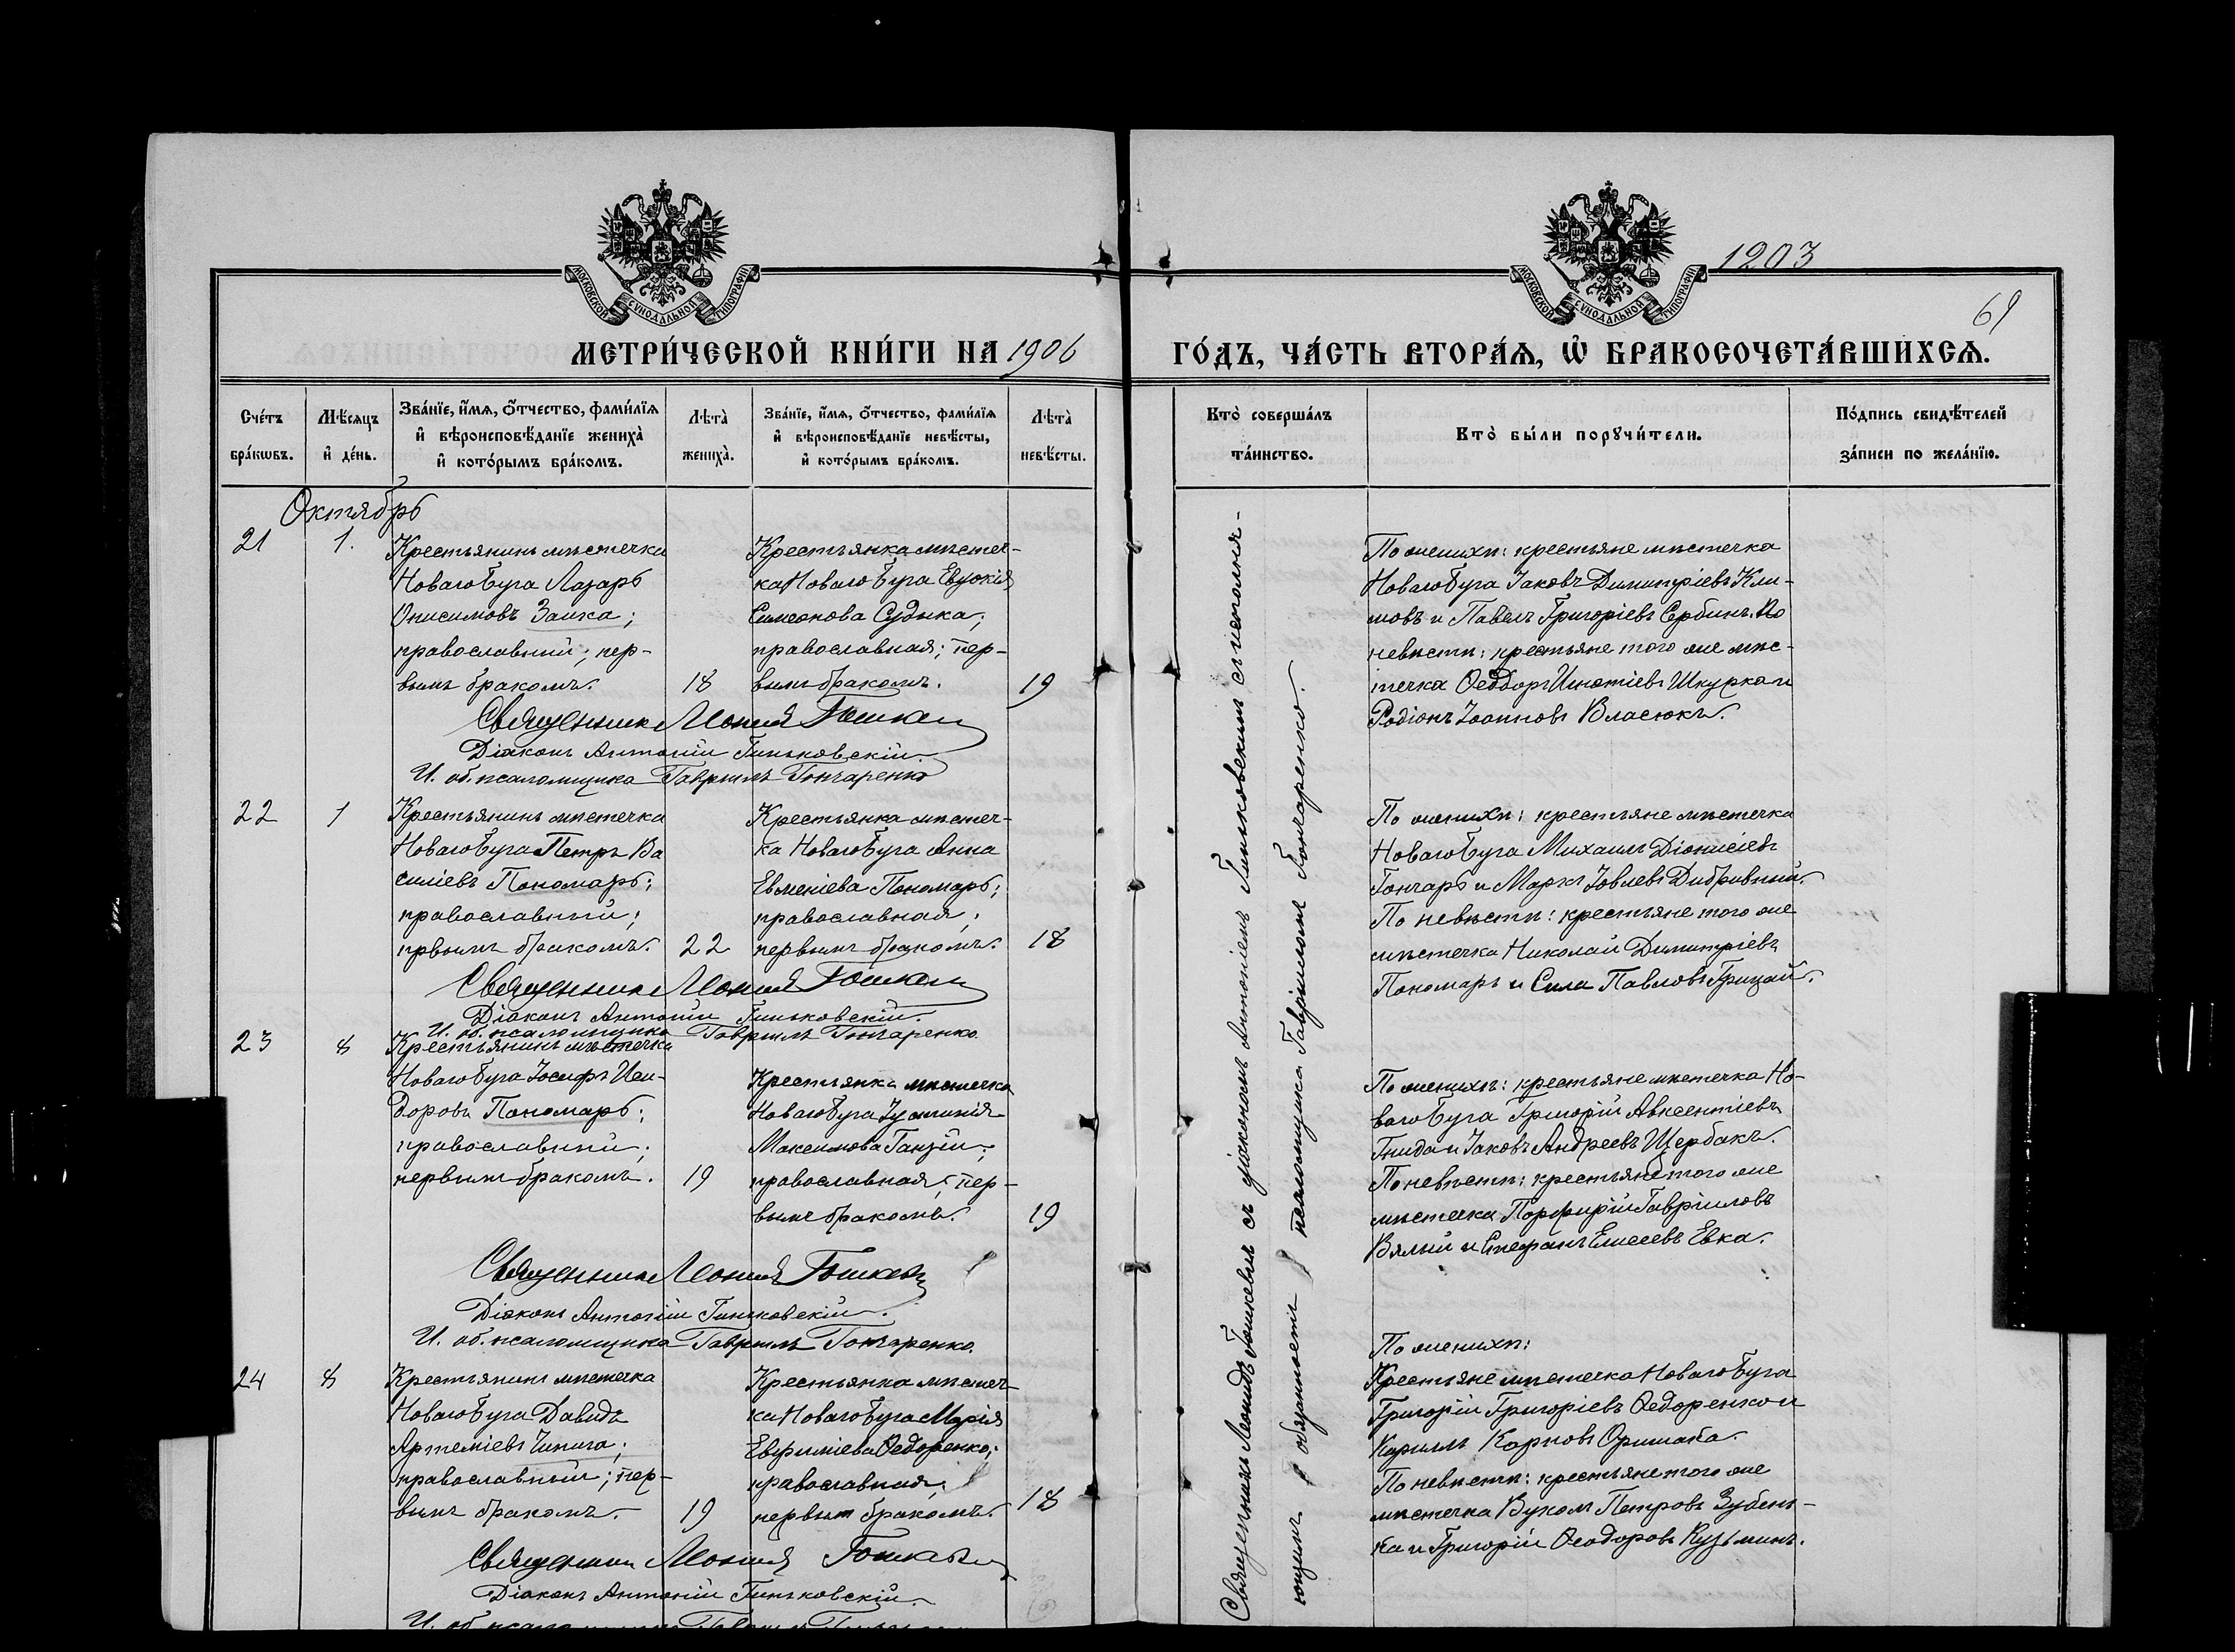 1203
69
МОСКОВСКОЙ СѴНОДАЛЬНОЙ ТИПОГРАФІИ
МОСКОВСКОЙ СѴНОДАЛЬНОЙ ТИПОГРАФІИ
МЕТРИ́ЧЕСКОЙ КНИ́ГИ НА 1906 ГО́ДЪ, ЧА́СТЬ ВТОРА́Ѧ, Ѡ҆ БРАКОСОЧЕТА́ВШИХСѦ.
Сче́тъ бра́кѡвъ.
Мѣ́сяцъ и҆ де́нь.
Зва́нїе, и҆́мѧ, ѻ҆́тчество, фами́лїѧ и҆ вѣроисповѣ́данїе жениха̀ и҆ кото́рымъ бра́комъ.
Лѣта̀ жениха̀.
Зва́нїе, и҆́мѧ, ѻ҆́тчество, фами́лїѧ и҆ вѣроисповѣ́данїе невѣ́сты, и҆ кото́рымъ бра́комъ.
Лѣта̀ невѣ́сты.
Кто̀ соверша́лъ та́инство.
Кто̀ бы́ли порꙋчи́тели.
По́дпись свидѣ́телей за́писи по жела́нїю.
Октябрь
21
1.
Крестьянинъ мѣстечка
Новаго Буга Лазарь
Онисимовъ Заика;
православный; пер-
вымъ бракомъ.
18
Крестьянка мѣстеч-
ка Новаго Буга Евдокія
Симеонова Судыка;
православная; пер-
вымъ бракомъ.
19
По женихѣ: крестьяне мѣстечка
Новаго Буга Іаковъ Димитріевъ Кли-
мовъ и Павелъ Григоріевъ Сербинъ. По
невѣстѣ: крестьяне того же мѣс-
течка Ѳеодоръ Игнатіевъ Шкурка и
Родіонъ Іоанновъ Власюкъ.
Священникъ Леонидъ
Діаконъ Антоній Гиньковскій.
И. об. псаломщика Гавріилъ Гончаренко
22
1
Крестьянинъ мѣстечка
Новаго Буга Петръ Ва
силіевъ Пономарь;
православный;
првымъ бракомъ.
22
Крестьянка мѣстеч-
ка Новаго Буга Анна
Евменіева Пономарь;
православная;
первымъ бракомъ.
18
По женихѣ: крестьяне мѣстечка
Новаго Буга Михаилъ Діонисіевъ
Гончарь и Маркъ Іовлевъ Дибривный.
По невѣстѣ: крестьяне того же
мѣстечка Николай Димитріевъ
Пономарь и Сила Павловъ Грицай.
Священникъ Леонидъ
Діаконъ Антоній Гиньковскій.
И. об. псаломщика Гавріилъ Гончаренко.
23
8
Крестьянинъ мѣстечка
Новаго Буга Іосифъ Иси-
доровъ Пономарь;
православный;
первымъ бракомъ.
19
Крестьянка мѣстечка
Новаго Буга Іустинія
Максимова Ганзій;
православная; пер-
вымъ бракомъ.
19
По женихѣ: крестьяне мѣстечка Но-
ваго Буга Григорій Авксентіевъ
Гнида и Іаковъ Андреевъ Щербакъ.
По невѣстѣ: крестьяне того же
мѣстечка Порфирій Гавріиловъ
Вялый и Стефанъ Елисеевъ Евка.
Священникъ Леонидъ
Діаконъ Антоній Гиньковскій.
И. об. псаломщика Гавріилъ Гончаренко.
24
8
Крестьянинъ мѣстечка
Новаго Буга Давидъ
Артеміевъ Чипига;
православный; пер-
вымъ бракомъ.
19
Крестьянка мѣстеч-
ка Новаго Буга Марія
Евфиміева Ѳедоренко;
православная;
первым бракомъ.
18
По женихѣ:
Крестьяне мѣстечка Новаго Буга
Григорій Григоріевъ Ѳедоренко и
Кириллъ Карповъ
По невѣстѣ: крестьяне того же
мѣстечка Вуколъ Петровъ Зубень-
ка и Григорій Ѳеодоровъ Кузьминъ.
Священникъ Леонидъ
Діаконъ Антоній Гиньковскій.
Священникъ Леонидъ съ діакономъ Антоніемъ Гиньковскимъ съ исполня-
ющимъ обязанности псаломщика Гавріиломъ Гончаренко.